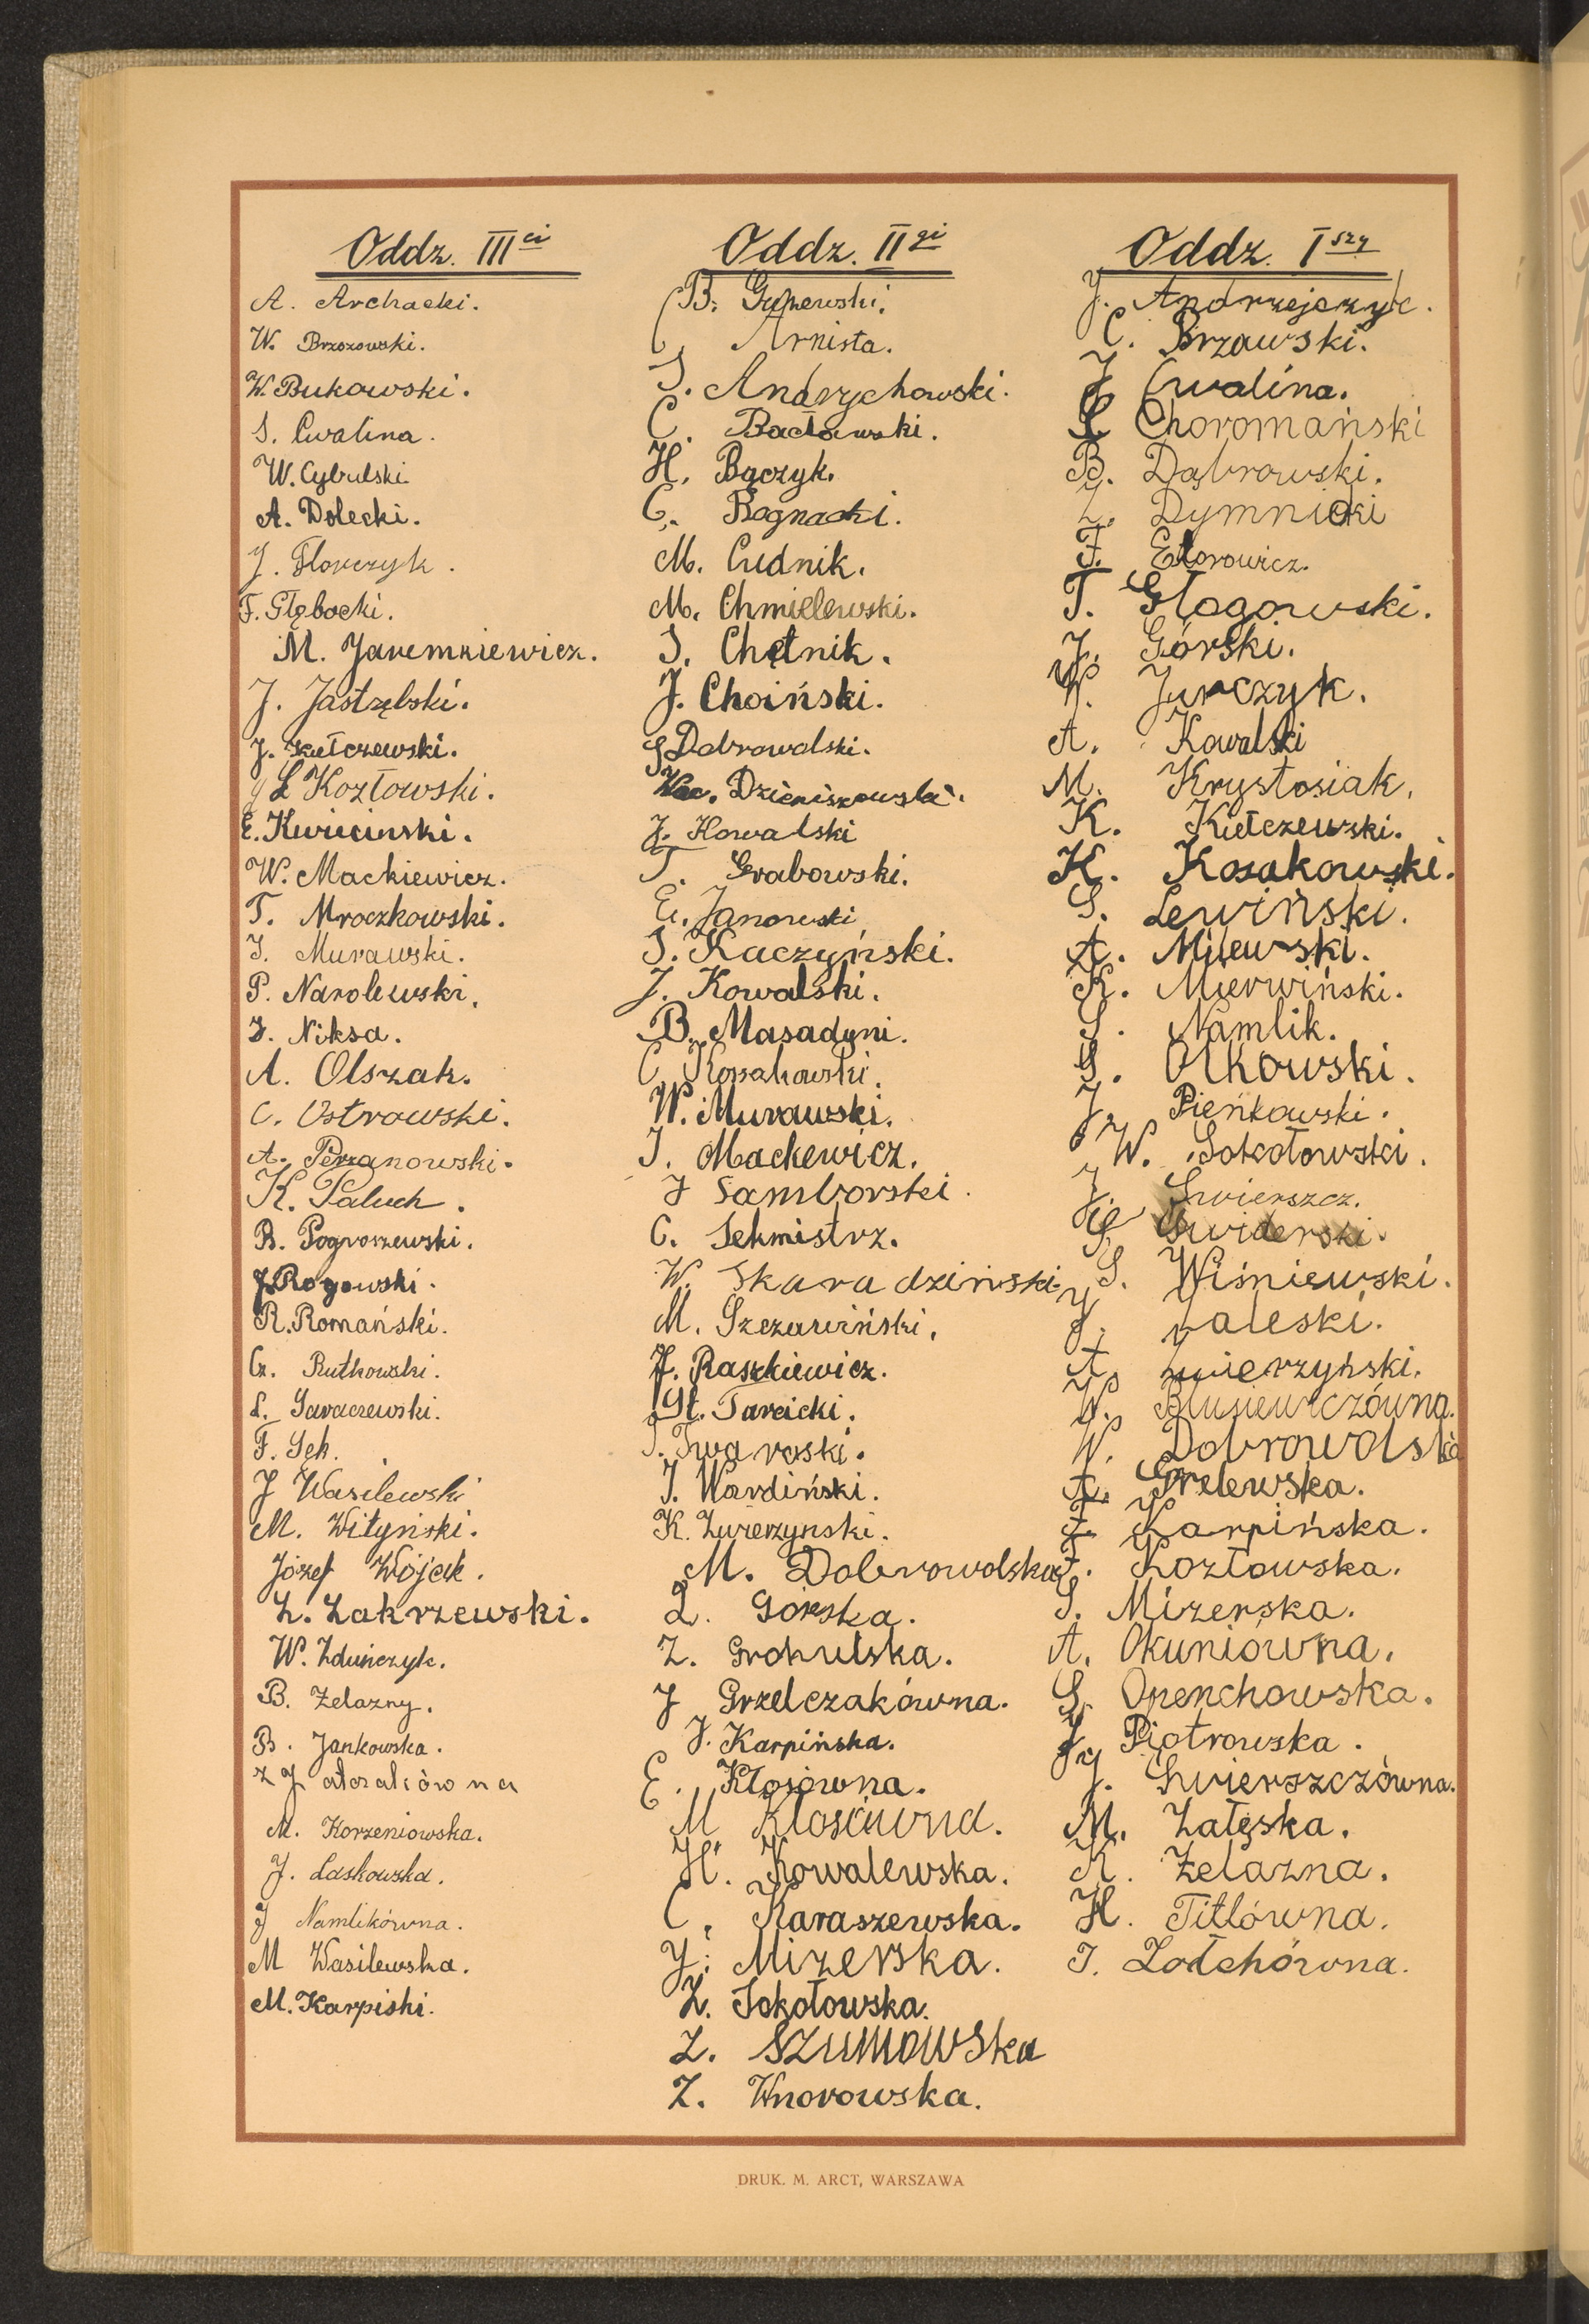 Oddz. III ci
A. Archacki.
W. Brzozowski.
W. Bukowski.
S. Cwalina.
W. Cybulski
A. Dolecki.
J. Florczyk.
F. Głębocki.
M. Jaremkiewicz.
J. Jastrzębski.
J. Kiełczewski.
L Kozłowski.
E. Kwiecinski.
W. Mackiewicz.
T. Mroczkowski.
J. Murawski.
P. Narolewski.
J. Niksa.
A. Olszak.
C. Ostrowski.
A. Perzanowski.
K. Paluch.
B. Pogroszewski.
J. Rogowski.
R. Romański.
Cz. Rutkowski.
L. Saraczewski.
F. Sęk.
J Wasilewski
M. Wityński.
Józef Wójcik.
Z. Zakrzewski.
W. Zduńczyk.
B. Żelazny.
B. Jankowska.
M. Korzeniowska.
J. Laskowska.
J Namlikówna.
M Wasilewska.
M. Karpiski.
Oddz. II gi
B.
C. Arnista.
S. Andrychowski.
C. Bacławski.
H. Bączyk.
C. Bagnacki.
M. Cudnik.
M. Chmielewski.
S. Chętnik.
J. Choiński.
S Dobrowolski.
Wac. Dzieniszewski.
J. Kowalski
T. Grabowski.
E. Janowski
S. Kaczyński.
J. Kowalski.
B. Masadyni.
C Kossakowski.
W. Murawski.
J. Mackewicz.
J Samborski.
C. Sekmistrz.
W. Skaradziński
M. Szczawiński.
J. Raszkiewicz.
St. Tarcicki.
J. Twaroski.
J. Wardiński.
K. Zwierzynski.
M. Dobrowolska
L. Górska.
Z. Grohulska.
J Grzelczakówna.
J. Karpińska.
E. Kłosówna.
M Kłosówna.
H. Kowalewska.
C. Karaszewska.
J. Mizerska.
Z. Sokołowska.
Z. Szumowska
Z. Wnorowska.
Oddz. I szy
J. Andrzejczyk.
C. Brzawski.
J Cwalina.
S Choromański
B. Dąbrowski.
Z. Dymnicki
F. Etorowicz.
T. Głogowski.
J. Górski.
W. Jurczyk.
A. Kowalski
M. Krystosiak.
K. Kiełczewski.
K. Kosakowski.
S. Lewiński.
A. Milewski.
K. Mierwiński.
S. Namlik.
S. Olkowski.
J. Pieńkowski.
W. Sokołowski.
J. Świerszcz.
S. Świderski.
S. Wiśniewski.
J. Zaleski.
A. Zwierzyński.
W. Blusiewiczówna.
W. Dobrowolska
A. Grelewska.
Z. Karpińska.
F. Kozłowska.
S. Mizerska.
A. Okuniówna.
S. Orenchowska.
J. Piotrowska.
J. Świerszczówna.
M. Załęska.
K. Żelazna.
H. Titlówna.
J. Zołchówna.
DRUK. M. ARCT, WARSZAWA